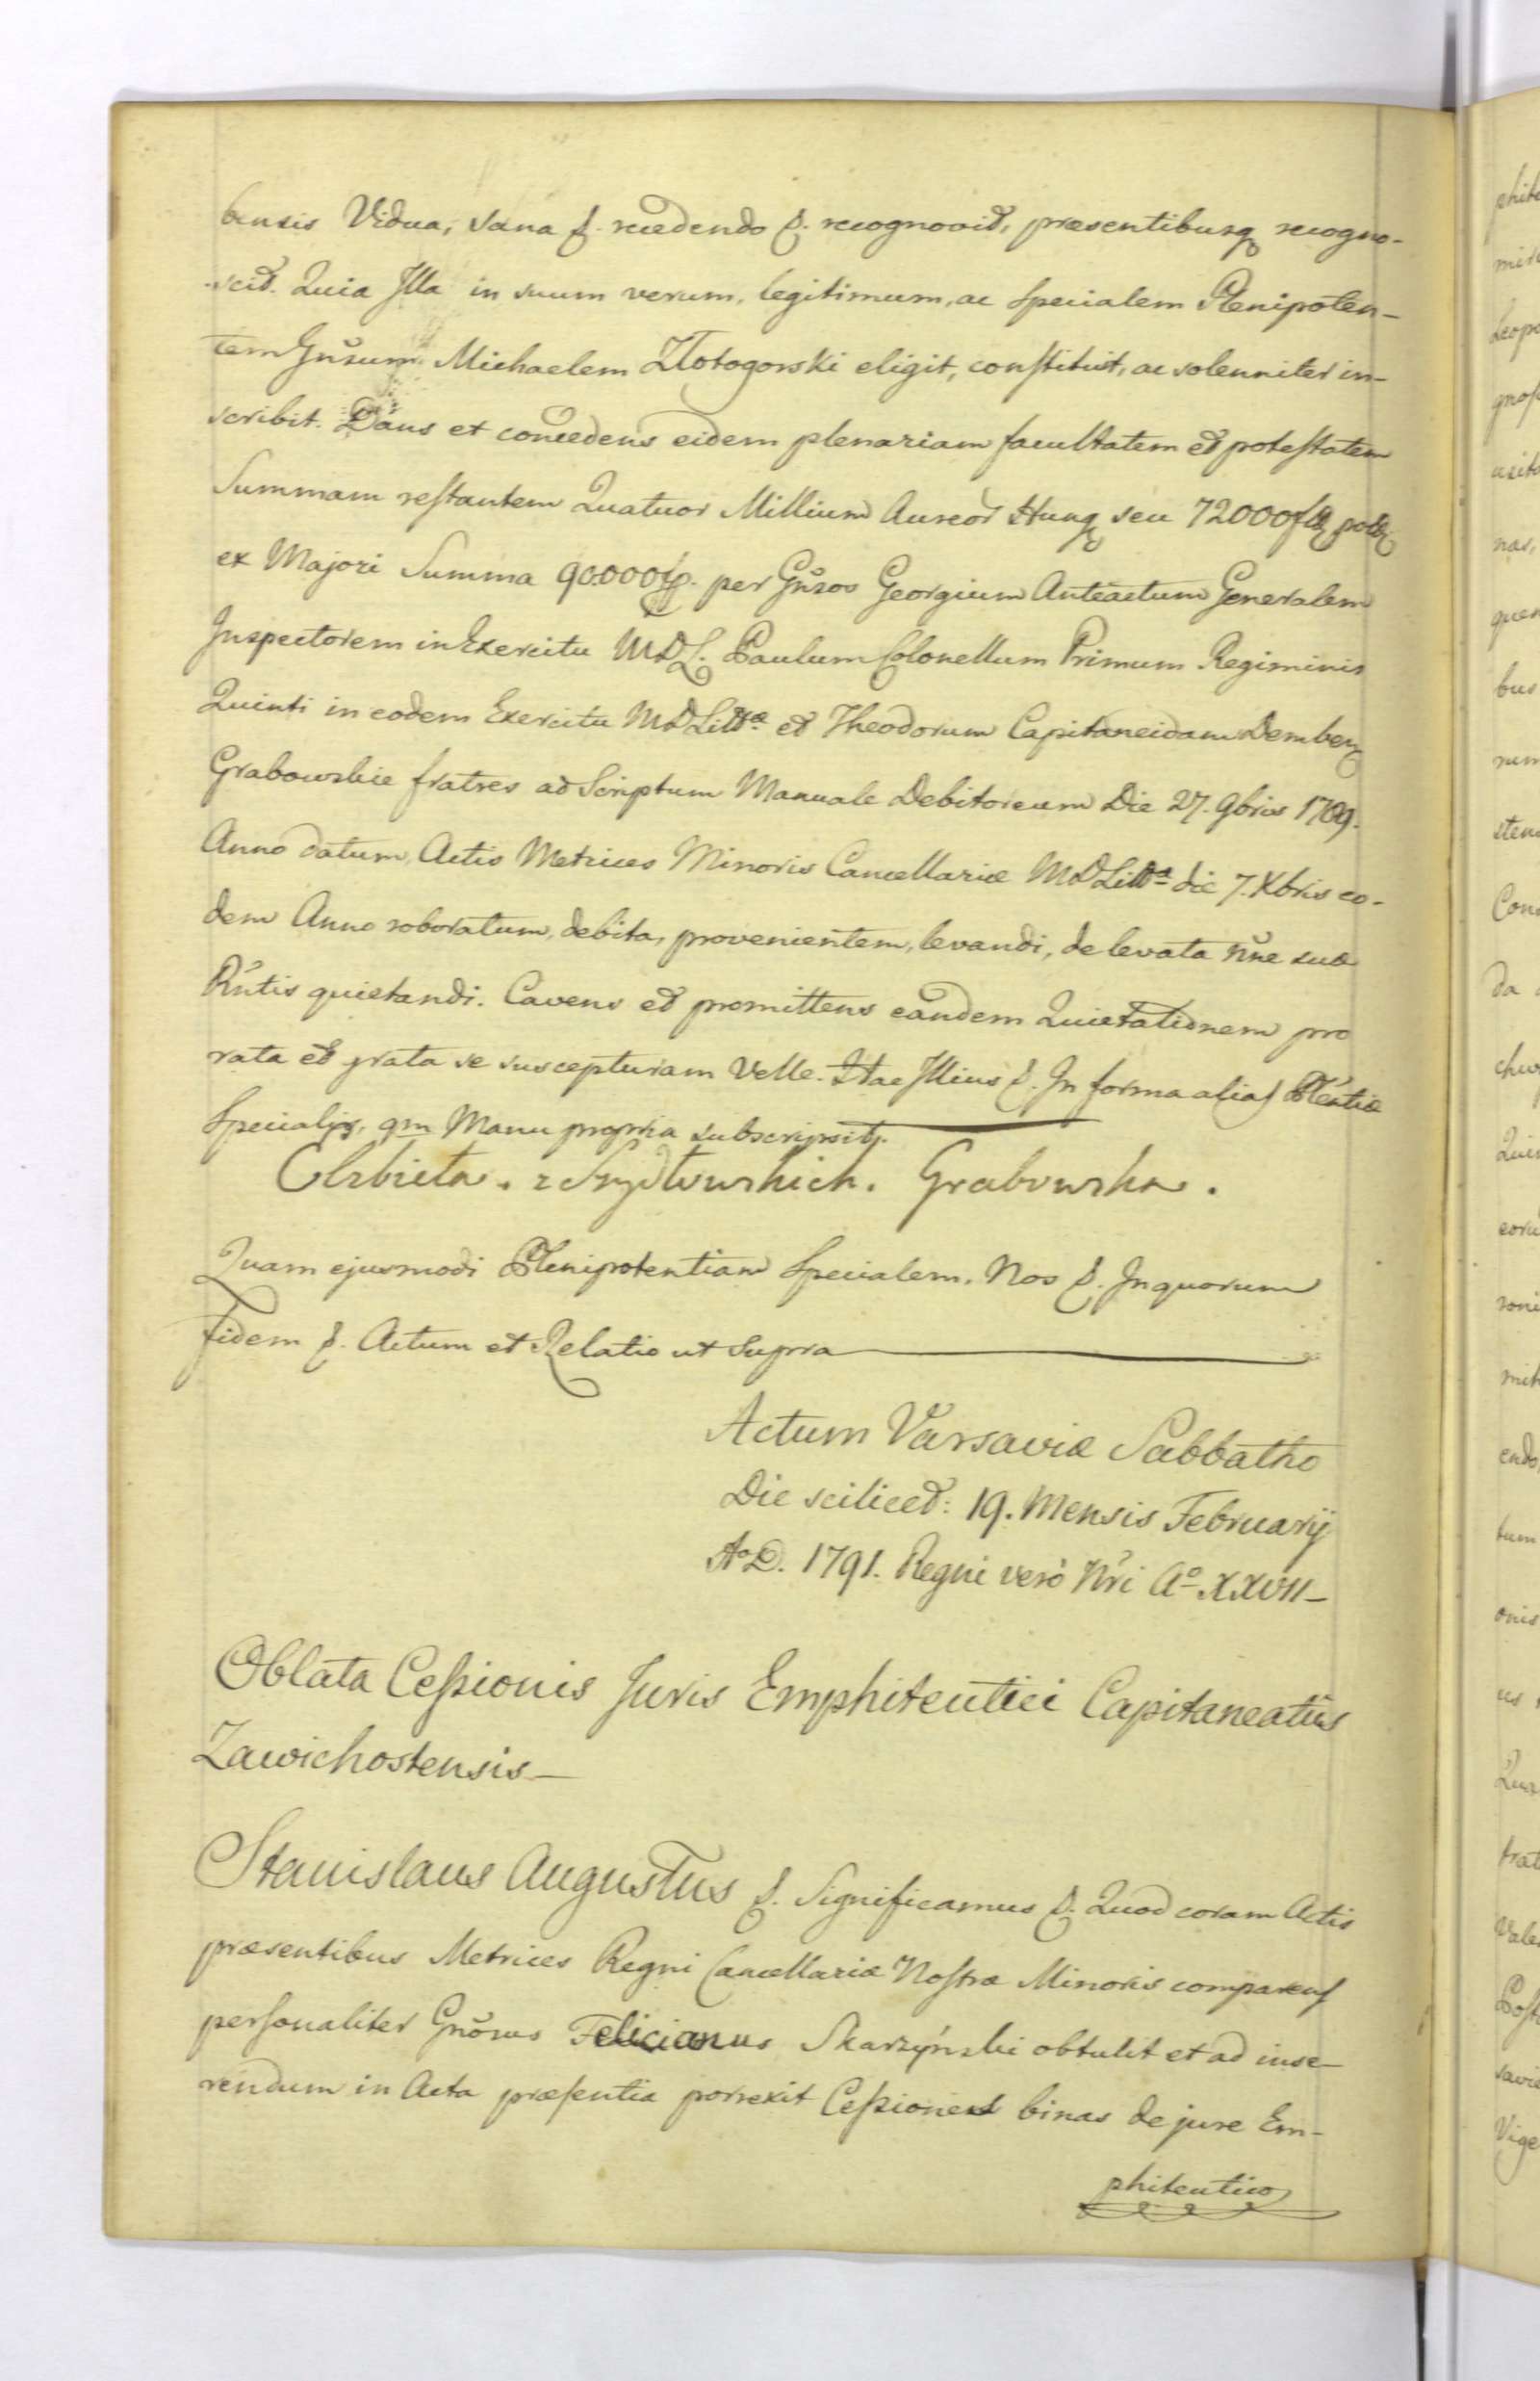 bensis Vidua, sana &. recedendo &. recognovit, præsentibusq recogno-
-scit. Quia Illa in suum verum, legitimum, ac specialem Plenipoten-
tem Gnsum Michaelem Złotogorski eligit, constituit, ac solenniter in-
scribit. Dans et concedens eidem plenariam facultatem et protestatem
Summam restantem Quatuor Millium Aureor Hung seu 72000 flp polq
ex Majori Summa 90.000 fp. per Gnsos Georgium Anteactum Generalem
Inspectorem in Exercitu MDL. Paulum Colonellum Primum Regiminis
Quinti in eodem Exercitu MDLittæ et Theodorum Capitaneidam Dembeng
Grabowskie fratres ad Scriptum Manuale Debitoreum Die 27. 9bris 1789.
Anno datum, Actis Metrices Minoris Cancellariæ MDLitta die 7. Xbris eo-
dem Anno roboratum, debita, provenientem, levandi, de levata nne suo
Rntis quietandi. Cavens et promittens eandem Quietationem pro
rata et grata se suscepturam Velle. Itae Illius &. In forma alias Plentiæ
Specialis, qm Manu propria subscripsit.
Elzbieta. z Szydłowskich. Grabowska.
Quam ejusmodi Plenipotentiam Specialem. Nos &. In quorum
fidem &. Actum et Relatio ut Supra
Actum Varsaviæ Sabbatho
Die scilicet: 19. Mensis Februarij
Ao D. 1791. Regni verò Nri Ao XXVII_
Oblata Cessionis Juris Emphiteutici Capitaneatus
Zawichostensis_
Stanislaus Augustus &. Significamus &. Quod coram Actis
præsentibus Metrices Regni Cancellariæ Nostræ Minoris comparens
personaliter Gnosus Felicianus Skarzyński obtulit et ad inse-
rendum in Acta præsentia porrexit Cessiones binas de jure Em-
phiteutico